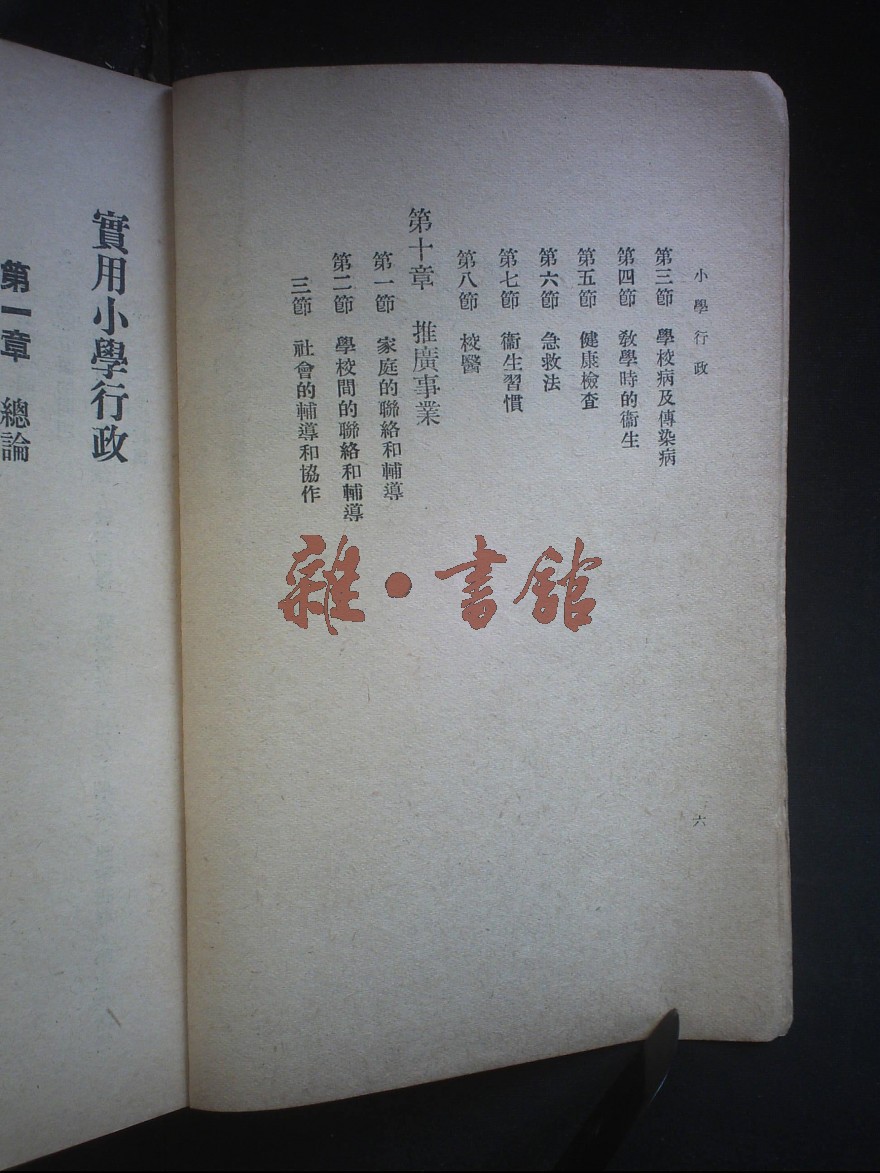 小學行政
第三節 學校病及傳染病
第四節 敎學時的衞生
第五節 健康檢査
第六節 急救法
第七節 衞生習慣
第八節 校醫
第十章 推廣事業
第一節 家庭的聯絡和輔導
第二節 學校間的聯絡和輔導
三節 社會的輔導和協作
六
雜·書館
實用小學行政
第一章 總論